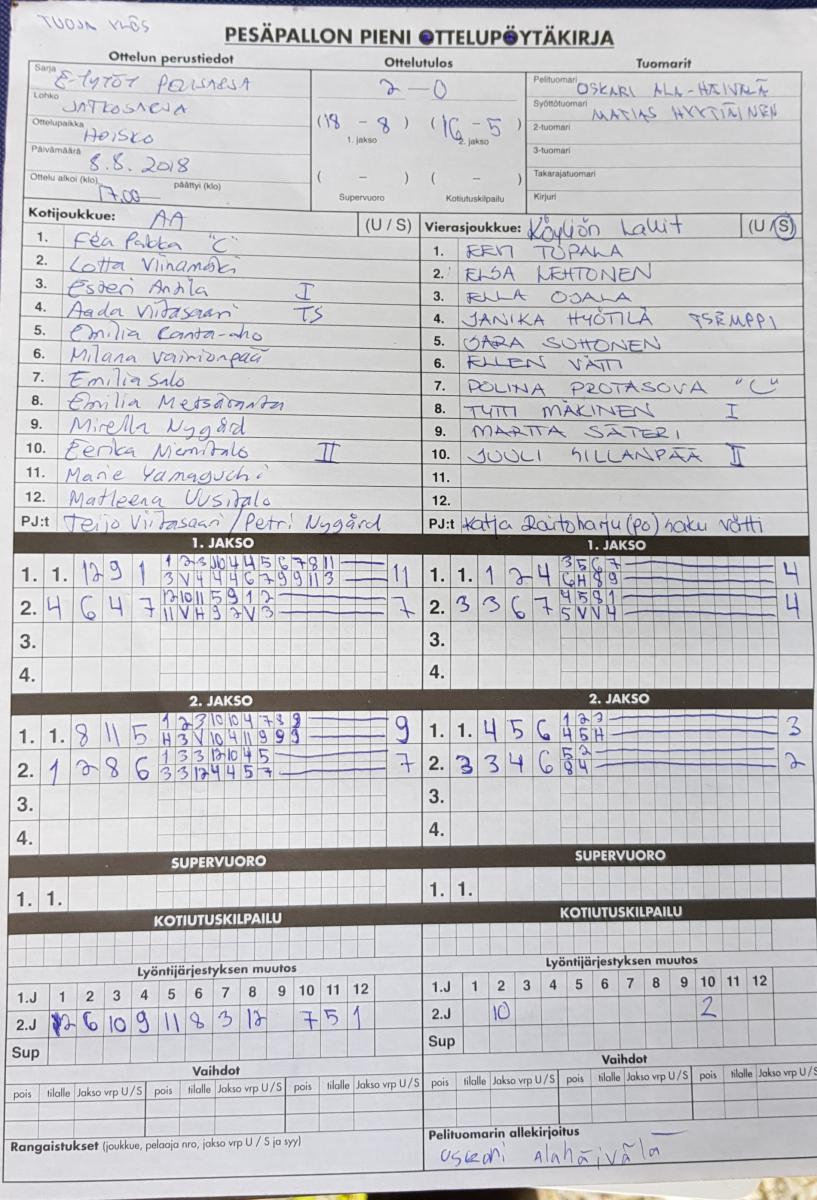 TUOJA YLÖS
PESÄPALLON PIENI OTTELUPÖYTÄKIRJA
Ottelun perustiedot
Sarja E-TYTÖT PERUSARJA
Lohko JATKOSARJA
Ottelupaikka HOISKO
Päivämäärä 8.8.2018
Ottelu alkoi (klo) 17.00 päättyi (klo)
Ottelutulos
2-0
(18 - 8) (16 - 5)
1. jakso 2. jakso
( - ) ( - )
Supervuoro Kotiutuskilpailu
Tuomarit
Pelituomari OSKARI ALA-HÄIVÄLÄ
Syöttötuomari MATIAS HYYTINEN
2-tuomari
3-tuomari
Takarajatuomari
Kirjuri
Kotijoukkue: AA (U / S)
1. Fea Pakka "C"
2. Lotta Viinamäki
3. Esteri Anttila I
4. Aada Viitasaari TS
5. Emilia Ranta-aho
6. Milana Vainionpää
7. Emilia Salo
8. Emilia Metsäranta
9. Mirella Nygård
10. Eerika Niemitalo II
11. Marie Yamaguchi
12. Matleena Uusitalo
PJ:t Teijo Viitasaari / Petri Nygård
Vierasjoukkue: Köyliön Lallit (U / S)
1. EERI TOPALA
2. ELSA LEHTONEN
3. ELLA OJALA
4. JANIKA HYÖTILÄ TSEMPPI
5. SARA SUHONEN
6. ELLEN VÄTTI
7. POLINA PROTASOVA "C"
8. TYTTI MÄKINEN I
9. MARTTA SÄTERI
10. JUULI SILLANPÄÄ II
11.
12.
PJ:t Katja Raitoharju (po) Satu Vätti
1. JAKSO
1. 1. 12 9 1 1 2 3 10 4 4 5 6 7 8 11 11
3 V 4 4 4 6 7 9 9 11 3
2. 4 6 4 7 12 10 11 5 9 1 2 7
11 V H 9 2 V 3
3.
4.
1. JAKSO
1. 1. 1 2 4 3 5 6 7 4
6 H 8 9
2. 3 3 6 7 4 5 8 1 4
5 V V 4
3.
4.
2. JAKSO
1. 1. 8 11 5 1 2 3 10 10 4 7 8 9 9
H 3 V 10 4 11 9 9 9
2. 1 2 8 6 1 3 3 12 10 4 5 7
3 3 12 4 4 5 7
3.
4.
2. JAKSO
1. 1. 4 5 6 1 2 3 3
4 5 H
2. 3 3 4 6 5 2 2
8 4
3.
4.
SUPERVUORO
1. 1.
SUPERVUORO
1. 1.
KOTIUTUSKILPAILU
KOTIUTUSKILPAILU
Lyöntijärjestyksen muutos
1.J 1 2 3 4 5 6 7 8 9 10 11 12
2.J 2 6 10 9 11 8 3 12 7 5 1
Sup
Lyöntijärjestyksen muutos
1.J 1 2 3 4 5 6 7 8 9 10 11 12
2.J 10 2
Sup
Vaihdot
pois tilalle Jakso vrp U / S pois tilalle Jakso vrp U / S pois tilalle Jakso vrp U / S
Vaihdot
pois tilalle Jakso vrp U / S pois tilalle Jakso vrp U / S pois tilalle Jakso vrp U / S
Rangaistukset (joukkue, pelaaja nro, jakso vrp U / S ja syy)
Pelituomarin allekirjoitus
Oskari Alahäivälä